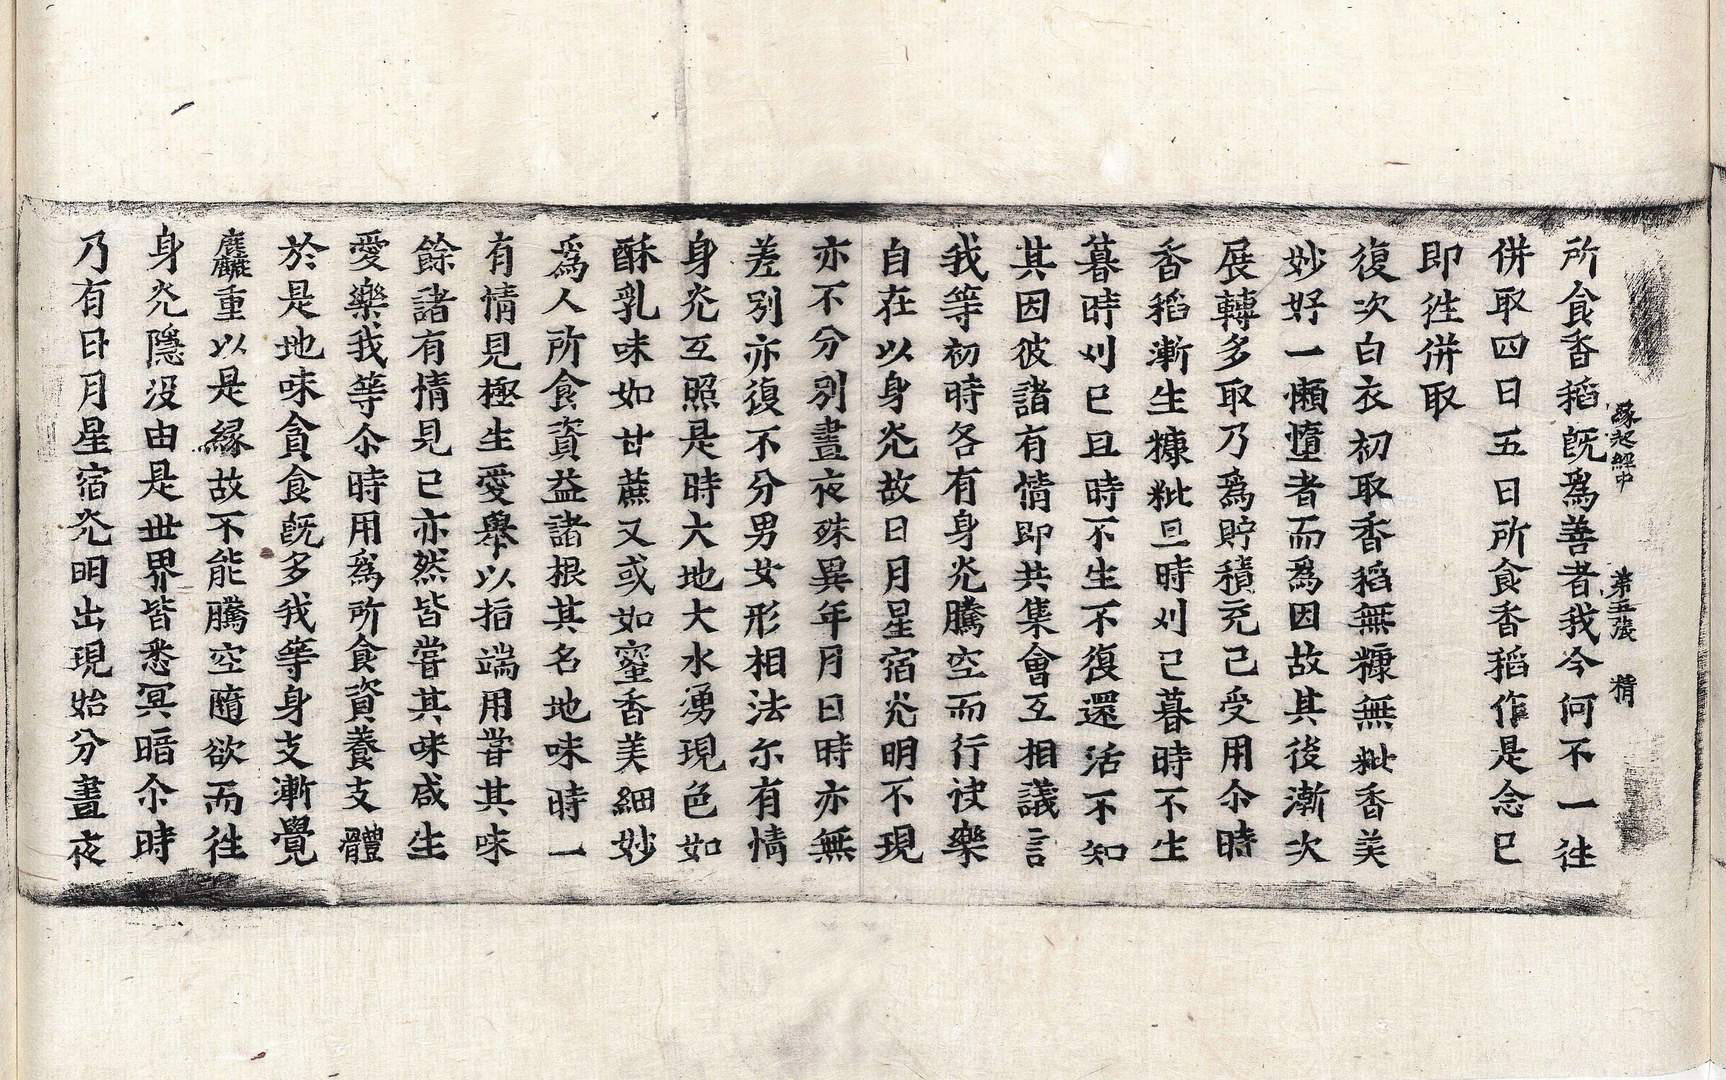 緣起經中 第五張 精
所食香稻旣爲善者我今何不一徃
併取四日五日所食香稻作是念已
即徃併取
復次白衣初取香稻無糠無粃香美
妙好一懶墮者而爲因故其後漸次
展轉多取乃爲貯積充己受用尒時
香稻漸生糠粃旦時刈已暮時不生
暮時刈已旦時不生不復還活不知
其因彼諸有情即共集會互相議言
我等初時各有身光騰空而行快樂
自在以身光故日月星宿光明不現
亦不分別晝夜殊異年月日時亦無
差別亦復不分男女形相法尒有情
身光互照是時大地大水湧現色如
酥乳味如甘蔗又或如蜜香美細妙
爲人所食資益諸根其名地味時一
有情見極生愛舉以指端用嘗其味
餘諸有情見已亦然皆嘗其味咸生
愛樂我等尒時用爲所食資養支體
於是地味貪食旣多我等身支漸覺
麤重以是緣故不能騰空隨欲而徃
身光隱沒由是世界皆悉冥暗尒時
乃有日月星宿光明出現始分晝夜